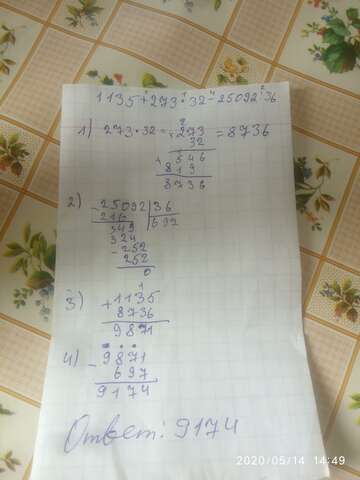 1135+273·32-25092:36
1) 273·32= ×273 =8736
32
546
+819
8736
2) 25092|36
216 |692
349
324
-252
252
0
3) +1135
8736
9871
4) -9871
697
9174
Ответ: 9174
2020/05/14 14:49